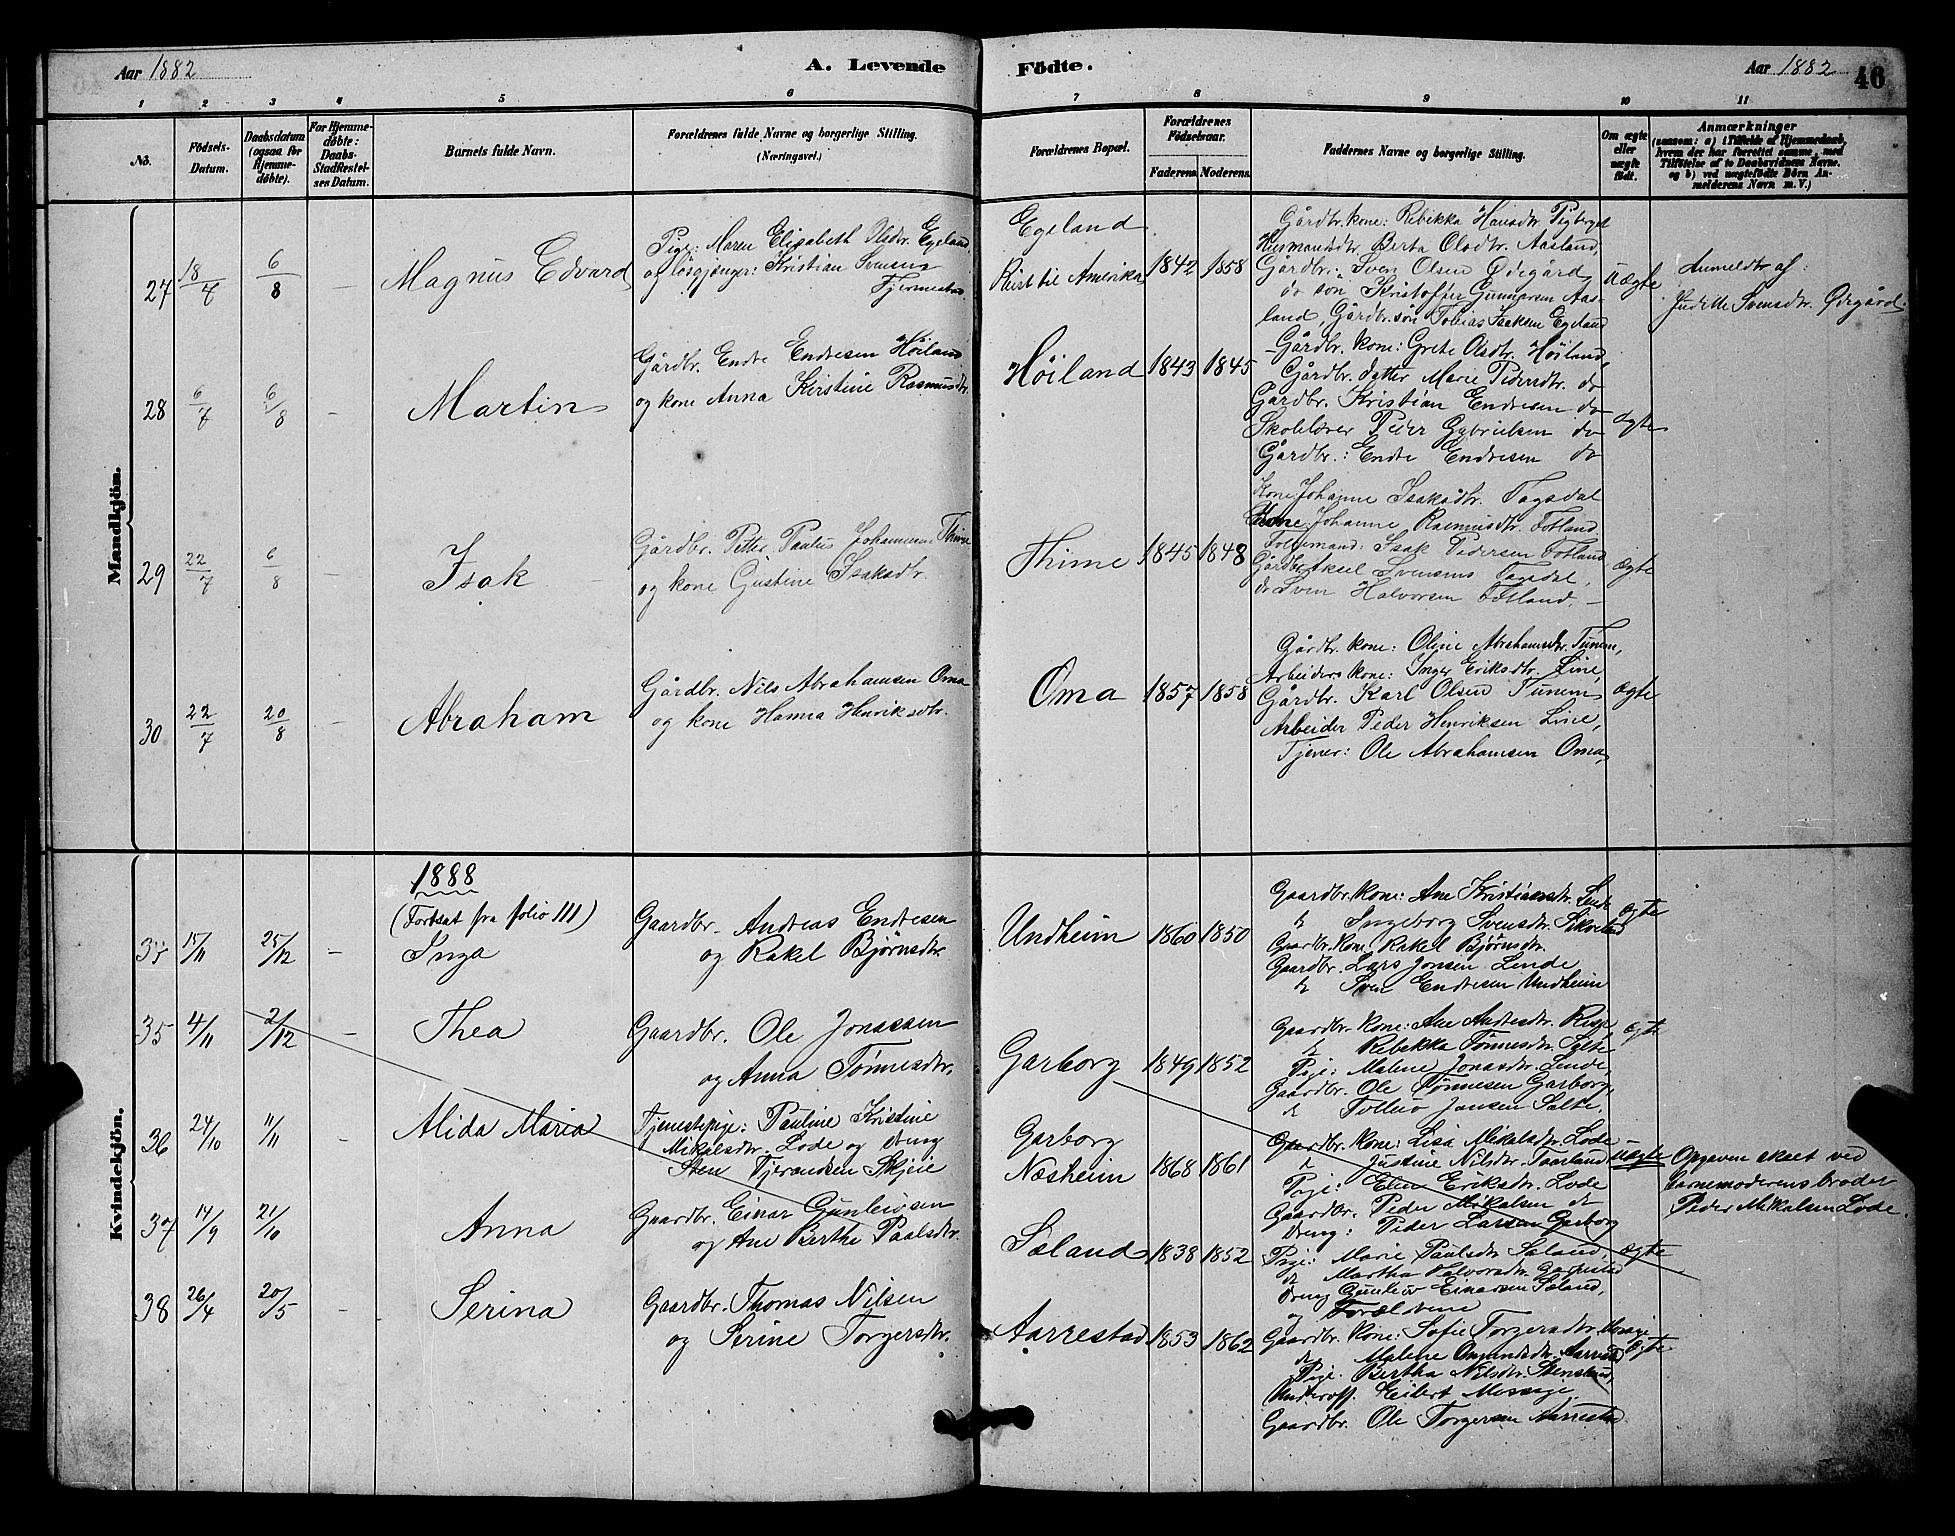 Aar 1882
A. Levende
Födte.
Aar 1882
46
1 2 3 4 5 6 7 8 9 10 11
No.
Födsels-
Datum.
Daabsdatum
(ogsaa for
Hjemme-
döbte).
For Hjemme-
döbte:
Daabs-
Stadfæstel-
sens Datum.
Barnets fulde Navn.
Forældrenes fulde Navne og borgerlige Stilling.
(Næringsvei.)
Forældrenes Bopæl.
Forældrenes
Födselsaar.
Faderens. Moderens.
Faddernes Navne og borgerlige Stilling.
Om ægte
eller
uægte
födt.
Anmærkninger
(saasom: a) i Tilfælde af Hjemmedaab,
hvem der har forrettet samme, med
Tilföielse af to Daabsvidners Navne,
og b) ved uægtefödte Börn An-
melderens Navn m. V.)
Mandkjön.
27 18/7 6/8 —
Magnus Edvard
Pige: Maren Elisabeth Olsdtr. Egeland,
og løsgjænger: Kristian Svensen
Tjermestad.
Egeland
Reist til Amerika
1842 1858
Gårdbr. kone: Rebekka Hansdtr.
Husmandsdtr Berta Olsdtr. Aasland,
Gårdbr.: Sven Olsen Ødegård
do søn Kristoffer Gunnarsen Aas-
land, Gårdbr. søn Tobias Isaksen Egeland
uægte
Anmeldt af:
Judithe Svensdtr. Ødegård.
28 6/7 6/8 —
Martin
Gårdbr. Endre Endresen Høiland
og kone Anna Kirstine Rasmusdtr.
Høiland
1843 1845
Gårdbr. kone: Grete Olsdtr. Høiland,
Gårdbr. datter Marie Pedersdtr. do
Gårdbr. Kristian Endresen do
Skolelærer Peder Gabrielsen do
Gårdbr.: Endre Endresen do
ægte
29 22/7 6/8 —
Isak
Gårdbr. Petter Paulus Johannesen Thime
og kone Gustine Isaksdtr.
Thime
1845 1848
Kone Johanne Isaksdtr. Tagsdal
Kone Johanne Rasmusdtr. Fotland
Følgemand: Isak Pedersen Fotland
Gårdbr. Aksel Svensens Tagsdal,
do Sven Halvorsen Fotland. —
ægte
30 22/7 20/8 —
Abraham
Gårdbr. Nils Abrahamsen Oma
og kone Hanna Henriksdtr.
Oma
1857 1858
Gårdbr. kone: Oline Abrahamsdtr. Tunem,
Arbeiders kone: Inger Eriksdtr. Line,
Gårdbr. Karl Olsen Tunem
Arbeider Peder Henriksen Line,
Tjener: Ole Abrahamsen Oma,
ægte
Kvindekjön.
1888
(Fortsat fra folio 111)
34 15/11 25/12 —
Inga
Gaardbr. Andreas Endresen
og Rakel Bjørnsdtr.
Undheim
1860 1850
Gaardbr. kone: Ane Kristiansdtr. Lende
do Ingeborg Svensdtr. Skretland
Gaardbr. kone Rakel Bjørnsdtr.
Gaardbr. Lars Jonsen Lende
do Sven Endresen Undheim
ægte
35 4/11 2/12 —
Thea
Gaardbr. Ole Jonassen
og Anna Tønnesdtr.
Garborg
1849 1852
Gaardbr. kone: Ane Andresdtr.
do Rebekka Tønnesdtr. Salte
Pige: Malene Jonasdtr. Lende,
Gaardbr. Ole Tønnesen Garborg,
do Jonsen Salte,
ægte
36 24/10 11/11 —
Alida Maria
Tjenestepige: Pauline Kristine
Mikalsdtr. Lode og dreng
Sten Tjerandsen Skjeie
Garborg
Næsheim
1868 1861
Gaardbr. kone: Lisa Mikalsdtr. Lode
do Justine Nilsdtr. Taarland
Pige: Elen Eriksdtr. Lode
Gaardbr. Peder Mikalsen do
Dreng: Peder Larsen Garborg
uægte
Opgaven skeet ved
barnemoderens broder
Peder Mikalsen Lode.
37 14/9 21/10
Anna
Gaardbr. Einar Gunleivsen
og Ane Berthe Paalsdtr.
Sæland
1838 1852
Pige: Marie Paulsdtr. Sæland,
do Martha Halvorsdtr.
Dreng Gunleiv Einarsen Sæland,
og Forældrene
ægte
38 26/4 20/5 —
Serina
Gaardbr. Thomas Nilsen
og Serine Torgersdtr.
Aarrestad
1853 1862
Gaardbr. kone: Sofie Torgersdtr. Mossige
do Malene Omundsdtr. Aarrestad
Pige: Bertha Nilsdtr. Stensland,
Underoff. Eilert Mossige,
Gaardbr. Ole Torgersen Aarrestad
ægte